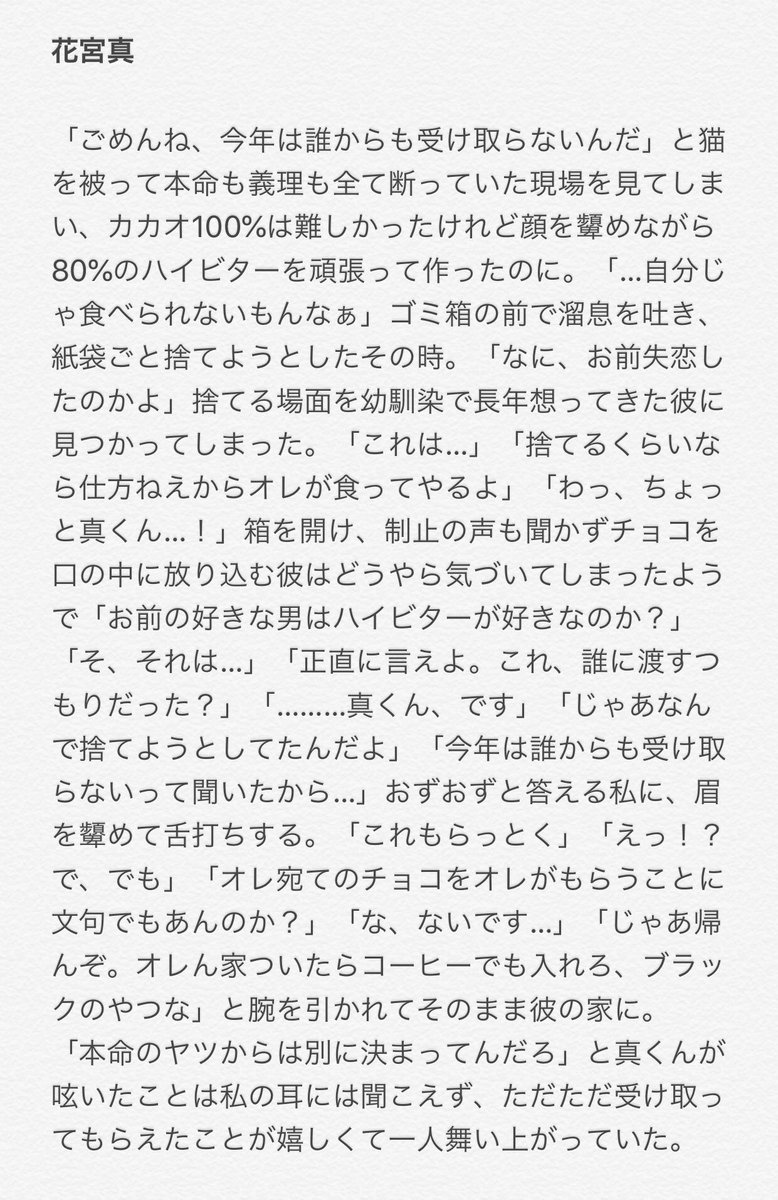 花宮真
「ごめんね、今年は誰からも受け取らないんだ」と猫
を被って本命も義理も全て断っていた現場を見てしま
い、カカオ100%は難しかったけれど顔を顰めながら
80%のハイビターを頑張って作ったのに。「...自分じ
ゃ食べられないもんなぁ」ゴミ箱の前で溜息を吐き、
紙袋ごと捨てようとしたその時。「なに、お前失恋し
たのかよ」捨てる場面を幼馴染で長年想ってきた彼に
見つかってしまった。「これは...」「捨てるくらいな
ら仕方ねえからオレが食ってやるよ」「わっ、ちょっ
と真くん...！」箱を開け、制止の声も聞かずチョコを
口の中に放り込む彼はどうやら気づいてしまったよう
で「お前の好きな男はハイビターが好きなのか？」
「そ、それは...」「正直に言えよ。これ、誰に渡すつ
もりだった？」「.........真くん、です」「じゃあなん
で捨てようとしてたんだよ」「今年は誰からも受け取
らないって聞いたから...」おずおずと答える私に、眉
を顰めて舌打ちする。「これもらっとく」「えっ！？
で、でも」「オレ宛てのチョコをオレがもらうことに
文句でもあんのか？」「な、ないです...」「じゃあ帰
んぞ。オレん家ついたらコーヒーでも入れろ、ブラッ
クのやつな」と腕を引かれてそのまま彼の家に。
「本命のヤツからは別に決まってんだろ」と真くんが
呟いたことは私の耳には聞こえず、ただただ受け取っ
てもらえたことが嬉しくて一人舞い上がっていた。